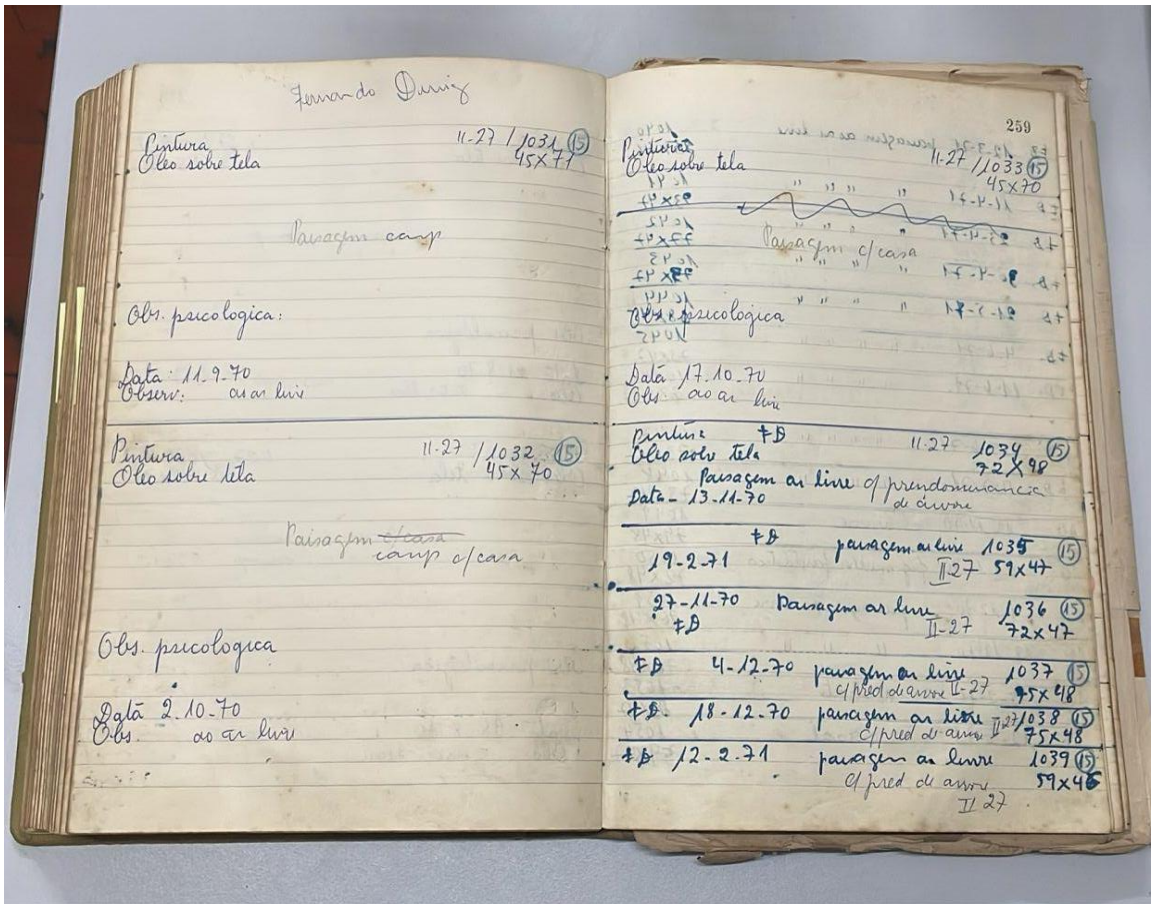 Fernando Diniz
Pintura II-27 / 1031 (15)
Oleo sobre tela 45x71
Paisagem camp
Obs. psicologica:
Data: 11.9.70
Observ: ao ar livre
Pintura II-27 / 1032 (15)
Oleo sobre tela 45x70
Paisagem c/casa
camp c/casa
Obs. psicologica
Data 2.10.70
Obs. ao ar livre
259
Pintura II-27 / 1033 (15)
Oleo sobre tela 45x70
Paisagem c/casa
Obs. psicológica
Data 17.10.70
Obs. ao ar livre
Pintura FD II-27 1034 (15)
Oleo sobre tela 72x98
Paisagem ar livre c/ prendominancia
de árvore
Data - 13-11-70
FD paisagem ar livre 1035 (15)
19-2-71 II-27 59x47
27-11-70 Paisagem ar livre 1036 (15)
FD II-27 72x47
FD 4-12-70 paisagem ar livre 1037 (15)
c/ pred de arvore II-27 75x48
FD 18-12-70 paisagem ar livre II-27/1038 (15)
c/pred de arvore 75x48
FD 12-2-71 paisagem ar livre 1039 (15)
c/ pred de arvore
II 27